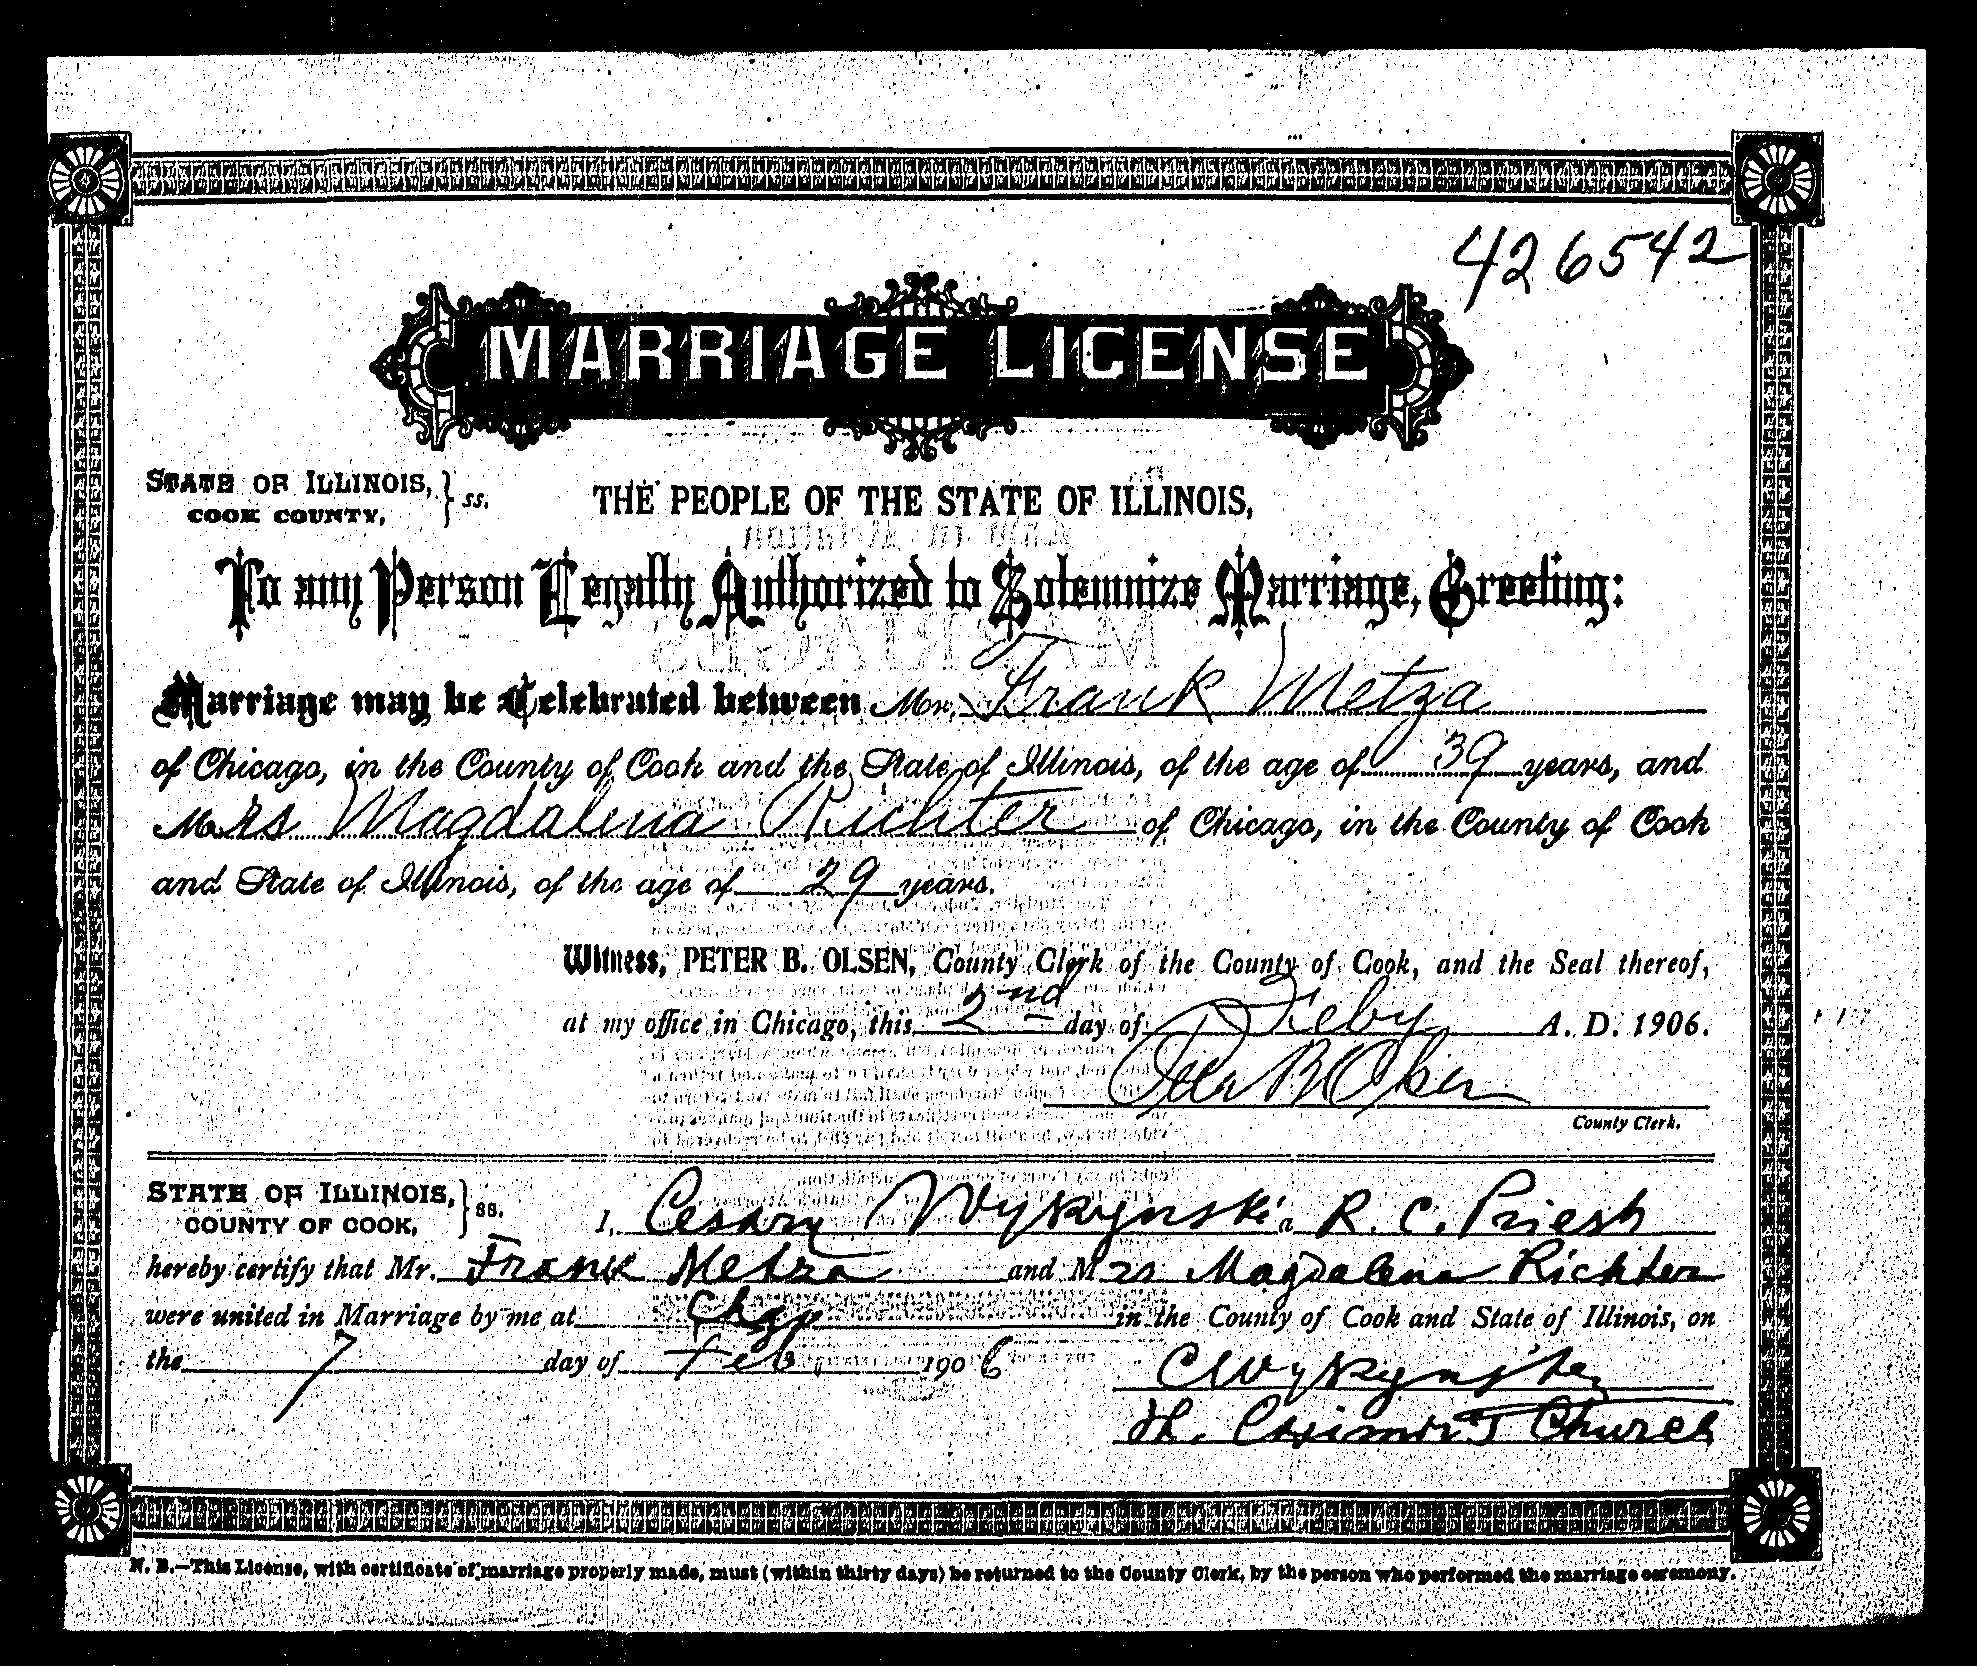 426542
MARRIAGE LICENSE
STATE OF ILLINOIS, } ss. THE PEOPLE OF THE STATE OF ILLINOIS,
COOK COUNTY,
To any Person Legally Authorized to Solemnize Marriage, Greeting:
Marriage may be Celebrated between Mr. Frank Metza
of Chicago, in the County of Cook and the State of Illinois, of the age of 39 years, and
Mrs Magdalena Richter of Chicago, in the County of Cook
and State of Illinois, of the age of 29 years.
Witness, PETER B. OLSEN, County Clerk of the County of Cook, and the Seal thereof,
at my office in Chicago, this 2nd day of Feby A. D. 1906.
Peter B Olsen
County Clerk.
STATE OF ILLINOIS, } ss. I, Cesary Wykrynski a R. C. Priest
COUNTY OF COOK,
hereby certify that Mr. Frank Metza and Mrs Magdalena Richter
were united in Marriage by me at Chgo in the County of Cook and State of Illinois, on
the 7 day of Feb 1906
St. Casimir's Church
N. B.—This License, with certificate of marriage properly made, must (within thirty days) be returned to the County Clerk, by the person who performed the marriage ceremony.